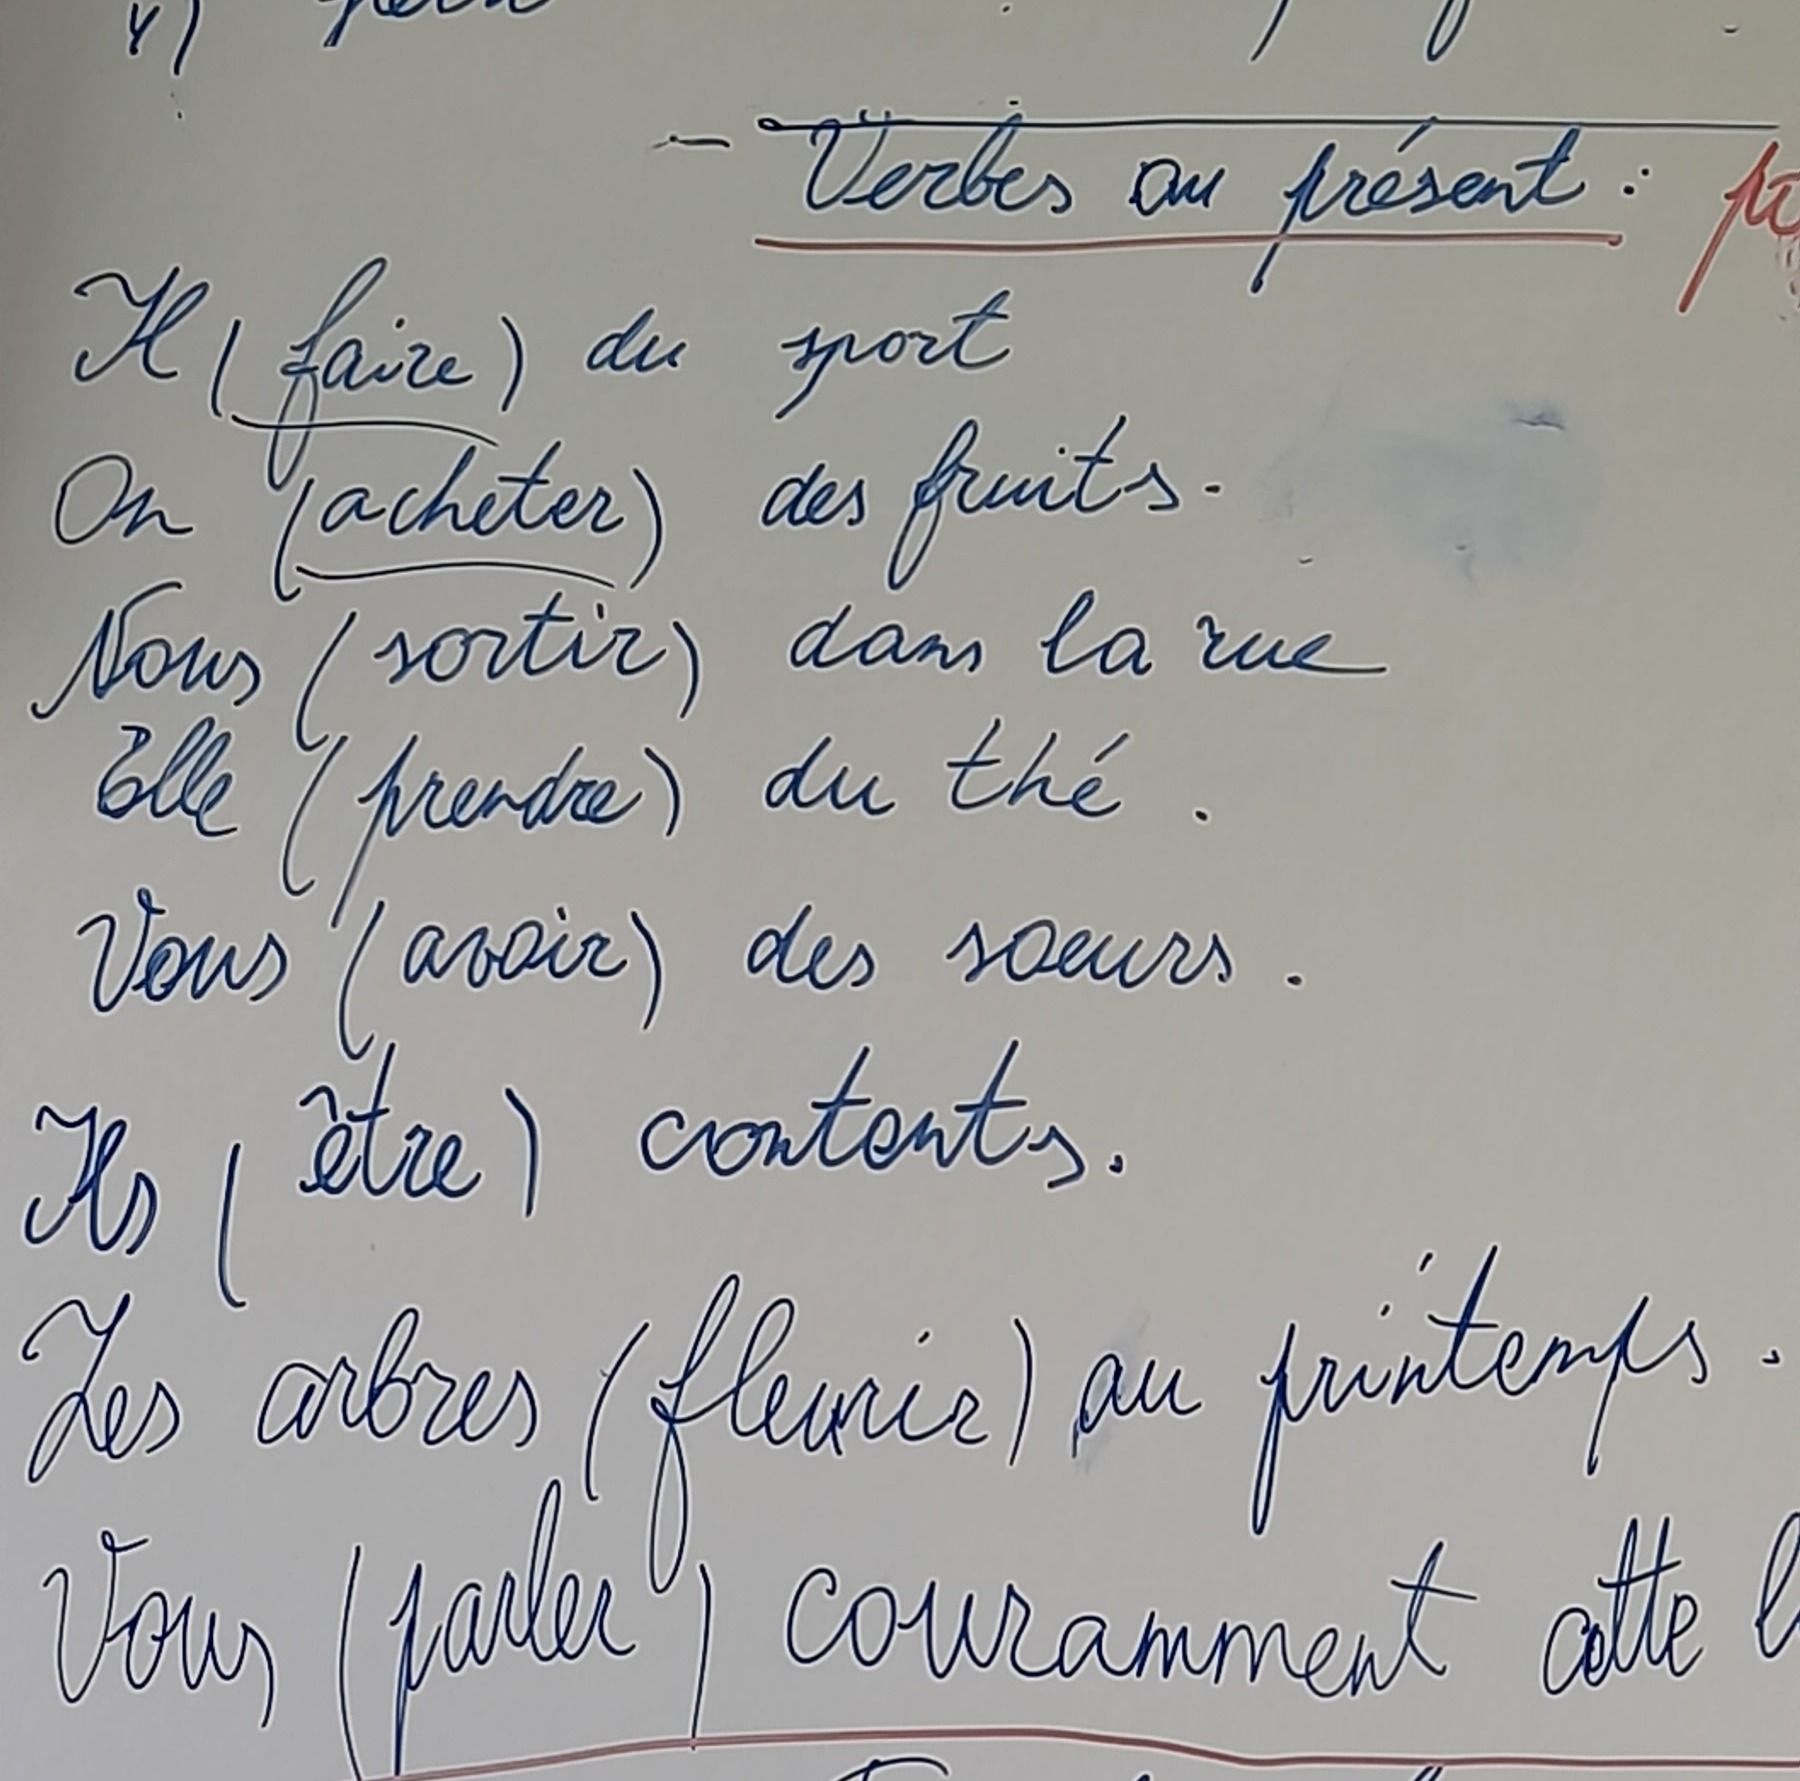 Verbes au présent :
Il (faire) du sport
On (acheter) des fruits.
Nous (sortir) dans la rue
Elle (prendre) du thé.
Vous (avoir) des soeurs.
Ils (être) contents.
Les arbres (fleurir) au printemps.
Vous (parler) couramment cette